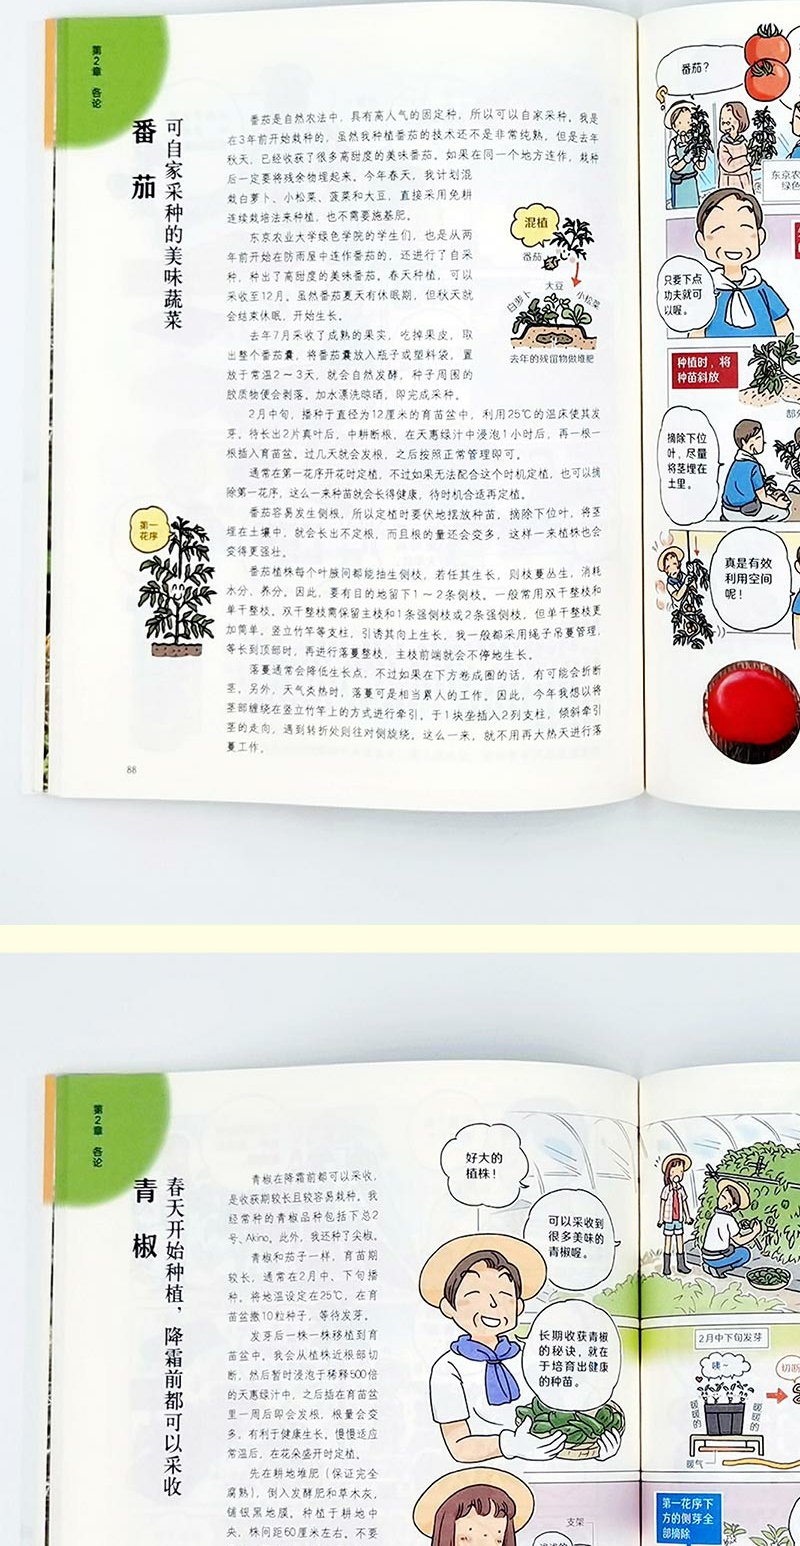 第2章 各论
番茄
可自家采种的美味蔬菜
番茄是自然农法中，具有高人气的固定种，所以可以自家采种。我是
在3年前开始栽种的，虽然我种植番茄的技术还不是非常纯熟，但是去年
秋天，已经收获了很多高甜度的美味番茄。如果在同一个地方连作，栽种
后一定要将残余物埋起来。今年春天，我计划混
栽白萝卜、小松菜、菠菜和大豆，直接采用免耕
连续栽培法来种植，也不需要施基肥。
东京农业大学绿色学院的学生们，也是从两
年前开始在防雨屋中连作番茄的，还进行了自采
种，种出了高甜度的美味番茄。春天种植，可以
采收至12月。虽然番茄夏天有休眠期，但秋天就
会结束休眠，开始生长。
去年7月采收了成熟的果实，吃掉果皮，取
出整个番茄囊，将番茄囊放入瓶子或塑料袋，置
放于常温2～3天，就会自然发酵，种子周围的
胶质物便会剥落。加水漂洗晾晒，即完成采种。
2月中旬，播种于直径为12厘米的育苗盆中，利用25℃的温床使其发
芽。待长出2片真叶后，中耕断根。在天惠绿汁中浸泡1小时后，再一根一
根插入育苗盆。过几天就会发根，之后按照正常管理即可。
通常在第一花序开花时定植，不过如果无法配合这个时机定植，也可以摘
除第一花序，这么一来种苗就会长得健康，待时机合适再定植。
番茄容易发生侧根，所以定植时要伏地摆放种苗，摘除下位叶，将茎
埋在土壤中，就会长出不定根，而且根的量还会变多，这样一来植株也会
变得更强壮。
番茄植株每个叶腋间都能抽生侧枝，若任其生长，则枝蔓丛生，消耗
水分、养分。因此，要有目的地留下1～2条侧枝。一般常用双干整枝和
单干整枝。双干整枝需保留主枝和1条强侧枝或2条强侧枝，但单干整枝更
加简单。竖立竹竿等支柱，引诱其向上生长，我一般都采用绳子吊蔓管理，
等长到顶部时，再进行落蔓整枝，主枝前端就会不停地生长。
落蔓通常会降低生长点，不过如果在下方卷成圈的话，有可能会折断
茎。另外，天气炎热时，落蔓可是相当累人的工作。因此，今年我想以将
茎部缠绕在竖立竹竿上的方式进行牵引。于1块垄插入2列支柱，倾斜牵引
茎的走向，遇到转折处则往对侧旋绕。这么一来，就不用再大热天进行落
蔓工作。
混植
番茄
大豆
白萝卜
小松菜
去年的残留物做堆肥
第一
花序
88
番茄？
东京农
绿色
只要下点
功夫就可
以喔。
种植时，将
种苗斜放
摘除下位
叶，尽量
将茎埋在
土里。
真是有效
利用空间
呢！
第2章 各论
青椒
春天开始种植，降霜前都可以采收
青椒在降霜前都可以采收，
是收获期较长且较容易栽种。我
经常种的青椒品种包括下总2
号、Akino。此外，我还种了尖椒。
青椒和茄子一样，育苗期
较长，通常在2月中、下旬播
种。将地温设定在25℃，在育
苗盆撒10粒种子，等待发芽。
发芽后一株一株移植到育
苗盆中。我会从植株近根部切
断，然后暂时浸泡于稀释500倍
的天惠绿汁中，之后插在育苗盆
里一周后即会发根，根量会变
多，有利于健康生长。慢慢适应
常温后，在花朵盛开时定植。
先在耕地堆肥（保证完全
腐熟），倒入发酵肥和草木灰，
铺银黑地膜。种植于耕地中
央，株间距60厘米左右。不要
好大的
植株！
可以采收到
很多美味的
青椒喔。
长期收获青椒
的秘诀，就在
于培育出健康
的种苗。
2月中下旬发芽
咦~
暖暖的
暖暖的
暖气
第一花序下
方的侧芽全
部摘除
支架